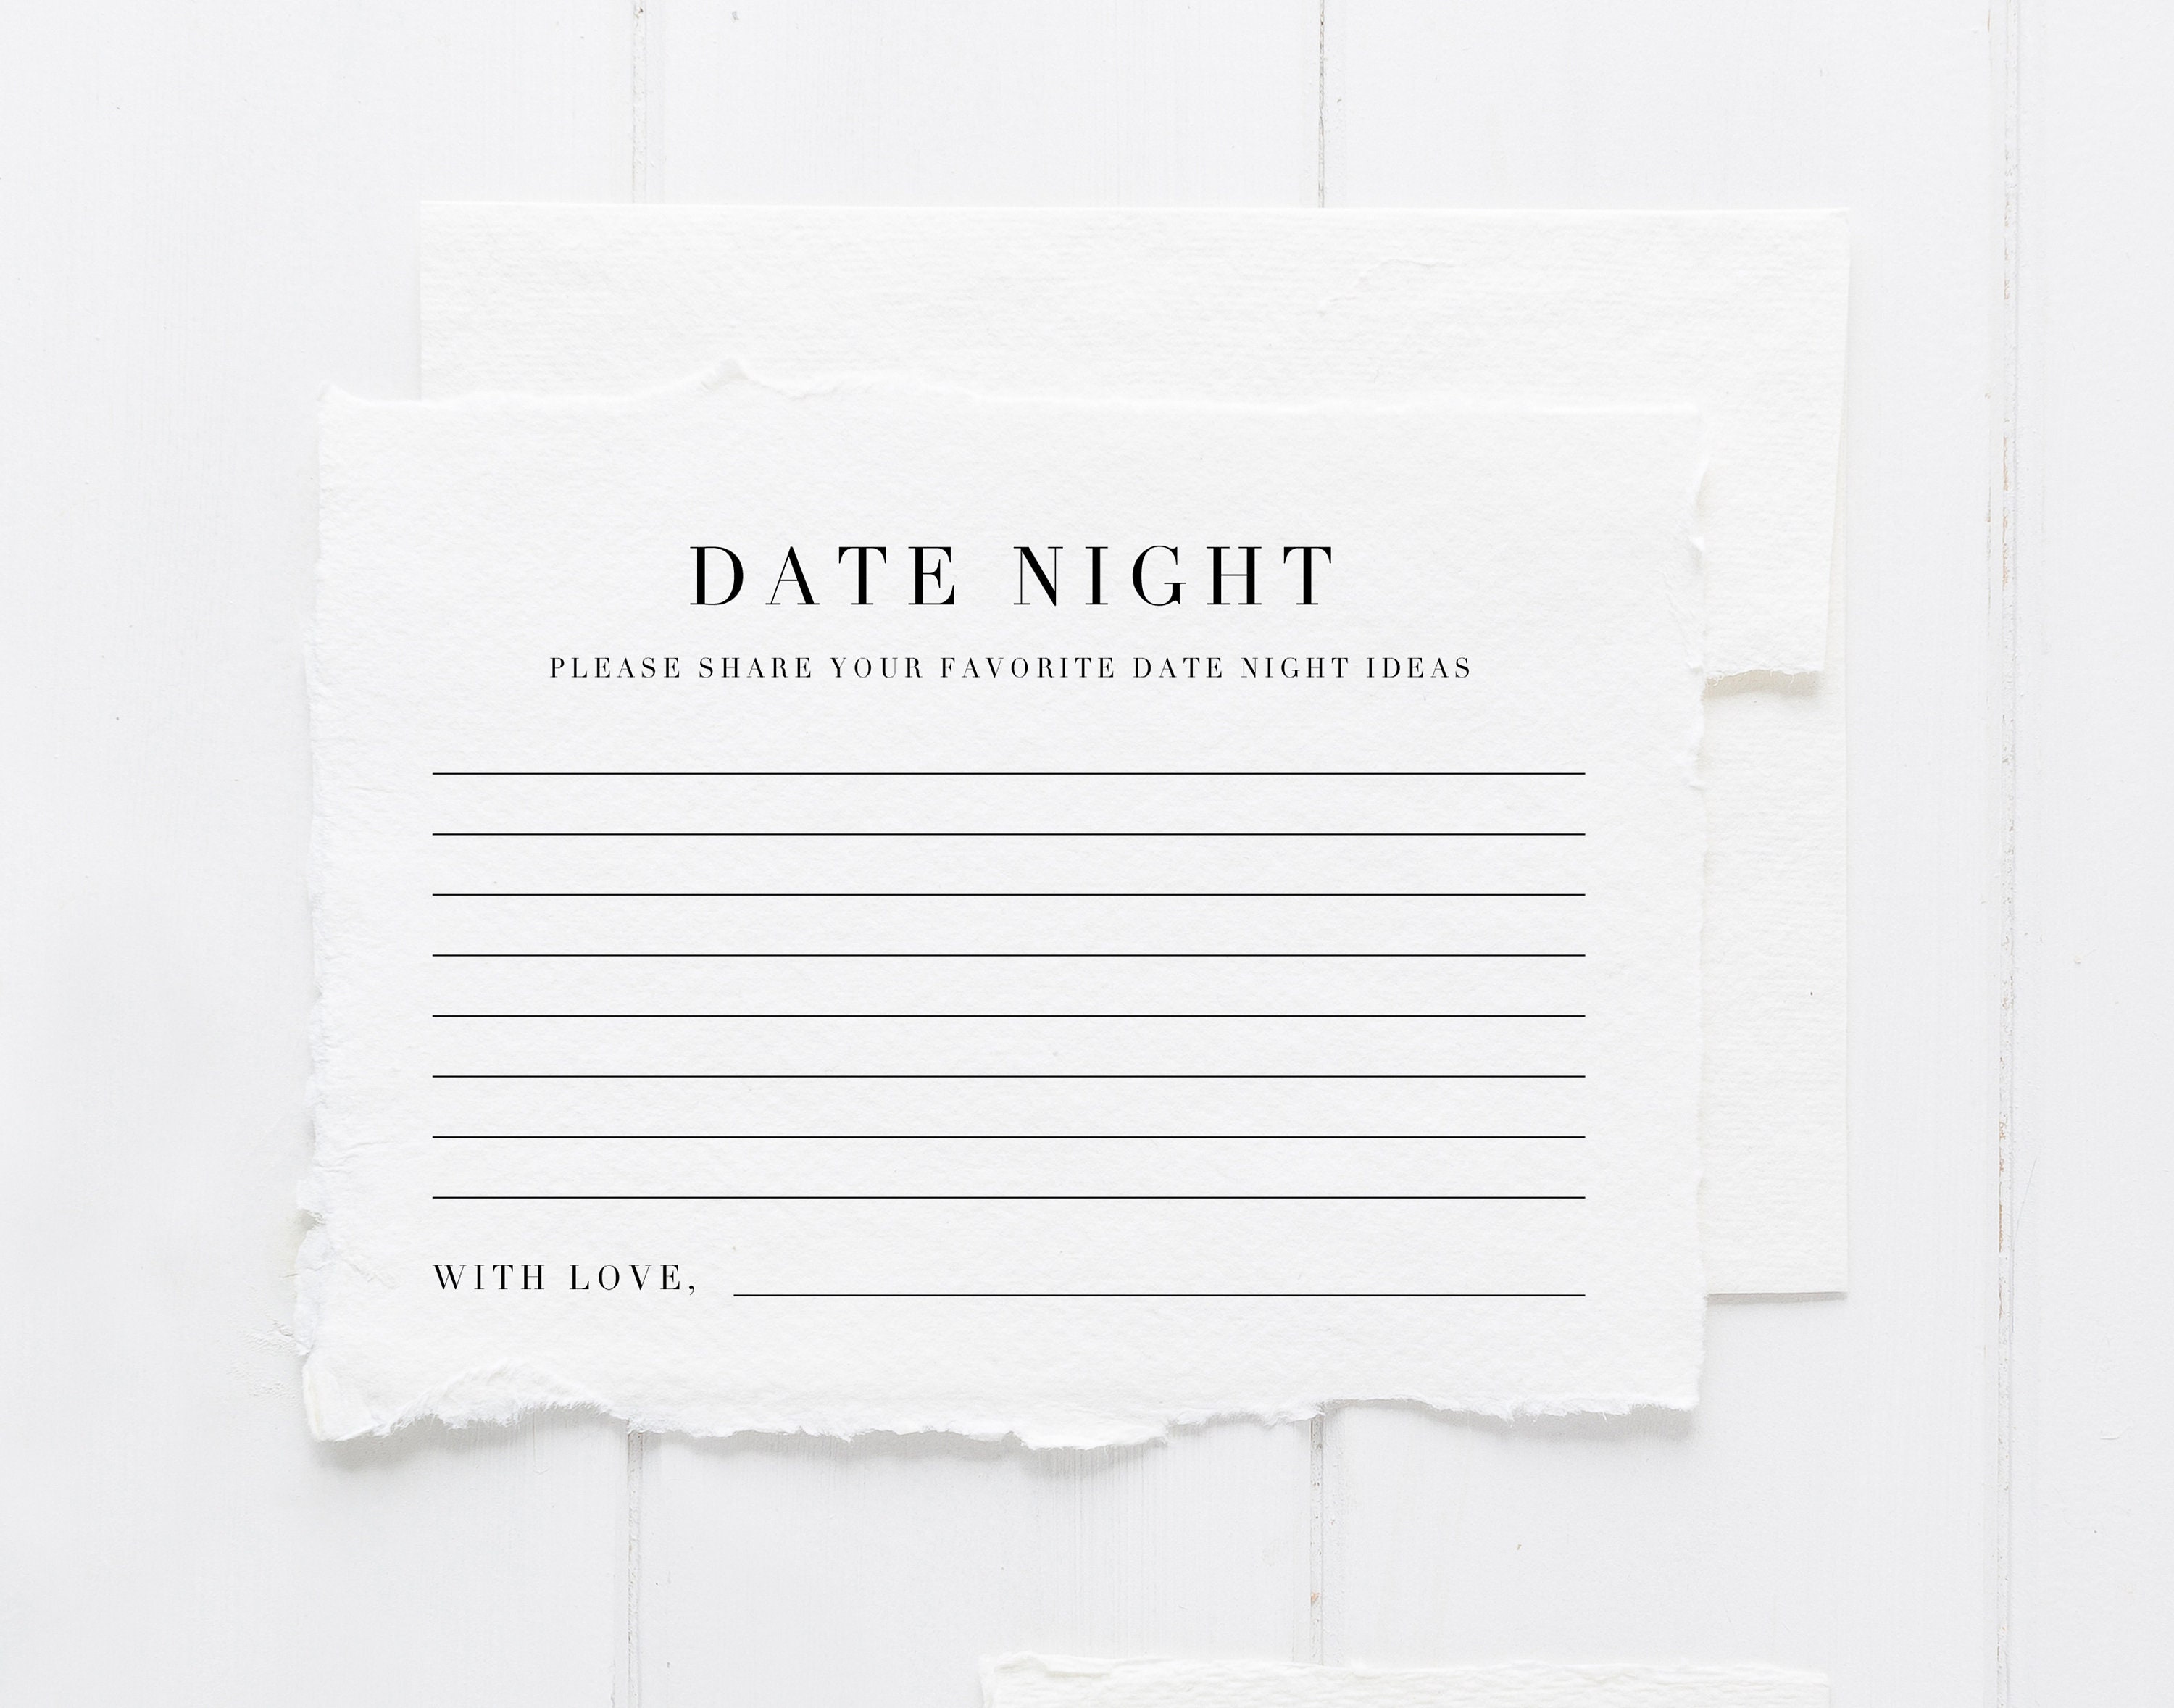 DATE NIGHT
PLEASE SHARE YOUR FAVORITE DATE NIGHT IDEAS
WITH LOVE,